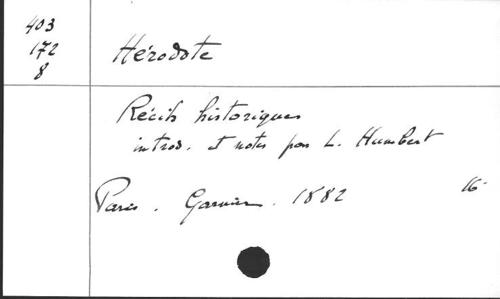 403
172
8
Hérodote
Récits historiques
introd. et notes par L. Humbert
Paris. Garnier. 1882 16-